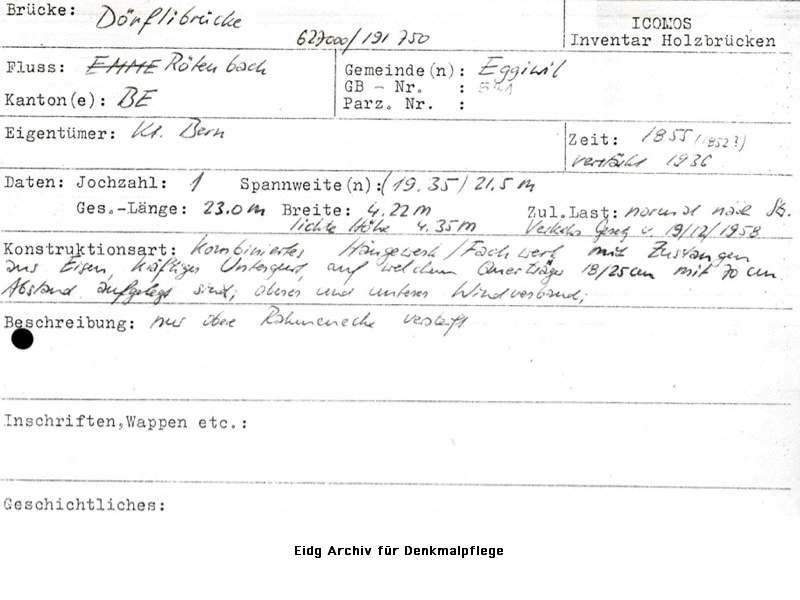 Brücke: Dörflibrücke
627000/191 750
ICOMOS
Inventar Holzbrücken
Fluss: EMME Rötenbach
Gemeinde(n): Eggiwil
GB - Nr. :
Kanton(e): BE
Parz. Nr. :
Eigentümer: Kt. Bern
Zeit: 1855 (1852?)
verstärkt 1936
Daten: Jochzahl: 1 Spannweite(n): (19.35) 21.5 m
Ges.-Länge: 23.0 m Breite: 4.22 m Zul.Last: normal nach Sb.
lichte Höhe 4.35 m Verkehrs Gesetz v. 19/12/1958
Konstruktionsart: kombiniertes Hängewerk/Fachwerk mit Zugstangen
aus Eisen, kräftiger Untergurt, auf welchem Querträger 18/25cm mit 70 cm
Abstand aufgelegt sind; oberer und unterer Windverband;
Beschreibung: nur obere Rahmenecke versteift
Inschriften,Wappen etc.:
Geschichtliches:
Eidg Archiv für Denkmalpflege